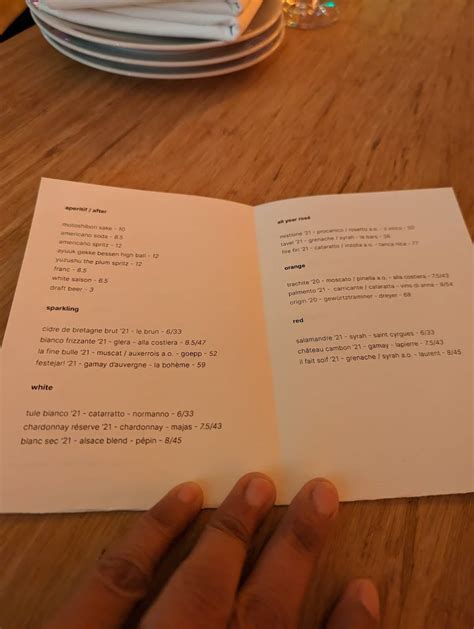 aperitif / after
motoshibori sake - 10
americano soda - 8.5
americano spritz - 12
ryuuk gekke bessen high ball - 12
yuzushu the plum spritz - 12
franc - 8.5
white saison - 6.5
draft beer - 3
sparkling
cidre de bretagne brut '21 - le brun - 6/33
bianco frizzante '21 - glera - alla costiera - 8.5/47
la fine bulle '21 - muscat / auxerrois a.o. - goepp - 52
festejar! '21 - gamay d'auvergne - la bohème - 59
white
tule bianco '21 - catarratto - normanno - 6/33
chardonnay réserve '21 - chardonnay - majas - 7.5/43
blanc sec '21 - alsace blend - pépin - 8/45
all year rosé
'21 - procanico / rosetto a.o. - il vinco - 50
tavel '21 - grenache / syrah - le banx - 56
'21 - cataratto / inzolia a.o. - tanca nica - 77
orange
trachite '20 - moscato / pinella a.o. - alla costiera - 7.5/43
palmento '21 - carricante / cataratta - vino di anna - 8/54
origin '20 - gewürztraminer - dreyer - 68
red
salamandre '21 - syrah - saint cyrgues - 6/33
château cambon '21 - gamay - lapierre - 7.5/43
il fait soif '21 - grenache / syrah a.o. - laurent - 8/45